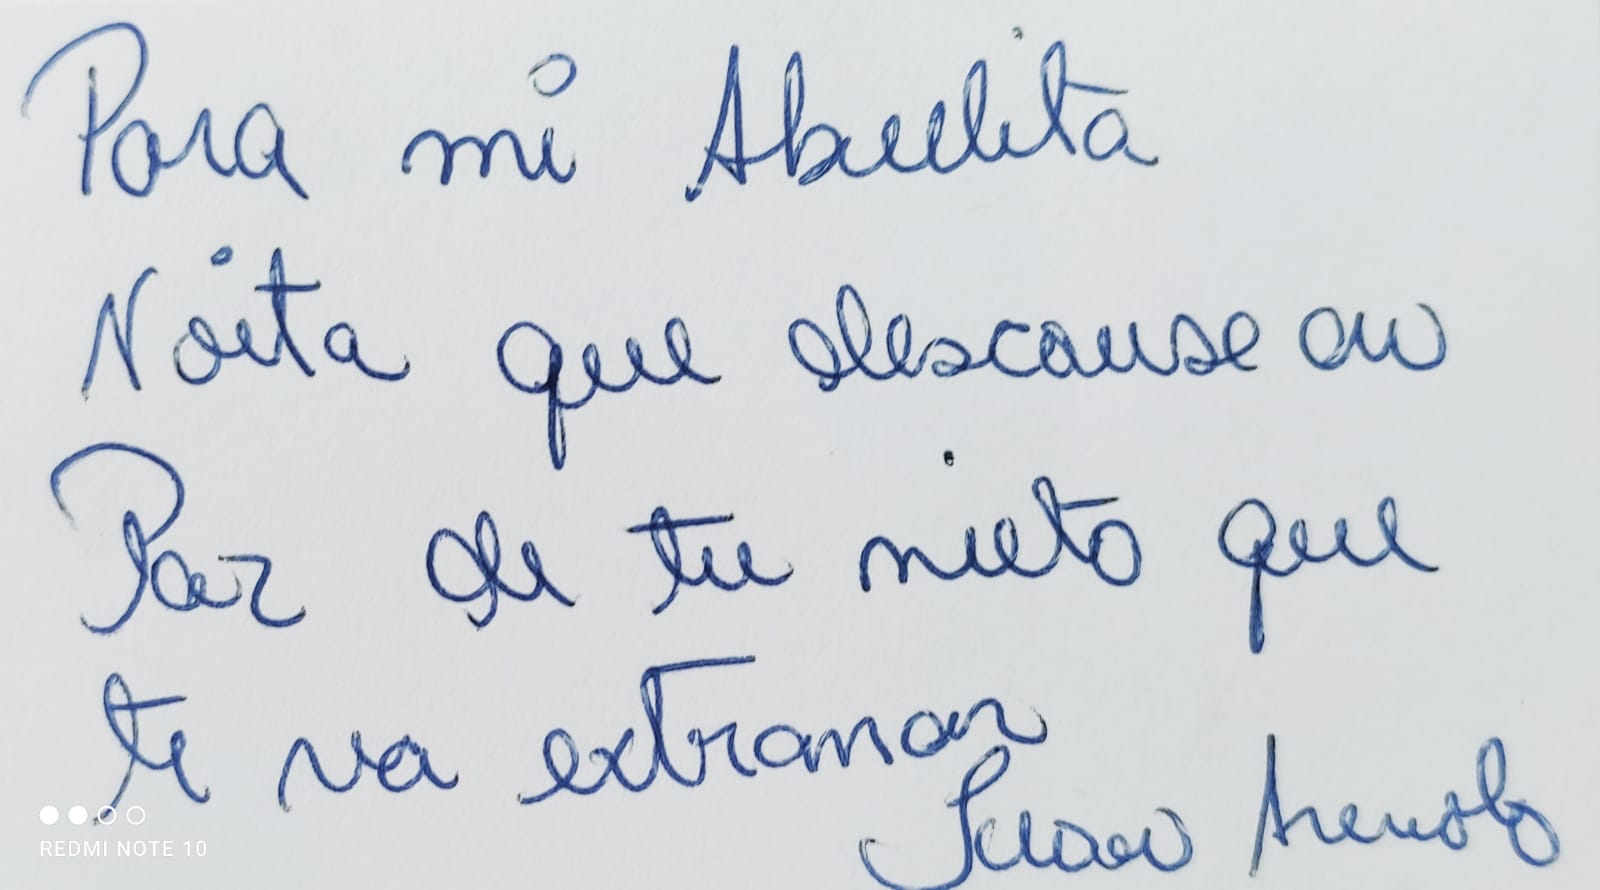 Para mi Abuelita
Noita que descanse en
Paz de tu nieto que
te va extranar
Juan
REDMI NOTE 10